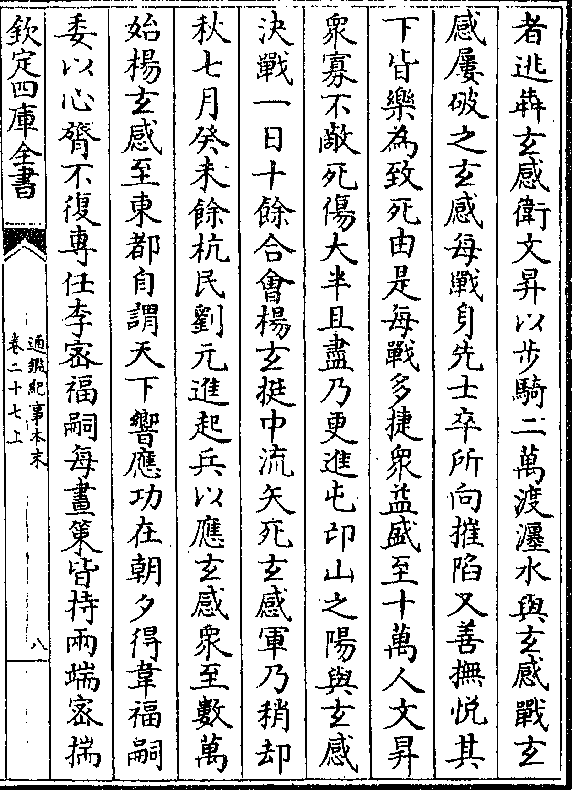 者逃犇玄感衛文昇以步騎二萬渡瀍水與玄感戰玄
感屢破之玄感每戰身先士卒所向摧陷又善撫悦其
下皆樂為致死由是每戰多捷衆益盛至十萬人文昇
衆寡不敵死傷大半且盡乃更進屯卭山之陽與玄感
決戰一日十餘合會楊玄挺中流矢死玄感軍乃稍却
秋七月癸未餘杭民劉元進起兵以應玄感衆至數萬
始楊玄感至東都自謂天下響應功在朝夕得韋福嗣
委以心膂不復專任李宻福嗣每畫策皆持兩端宻揣
欽定四庫全書
通鑑紀事本末
卷二十七上
八